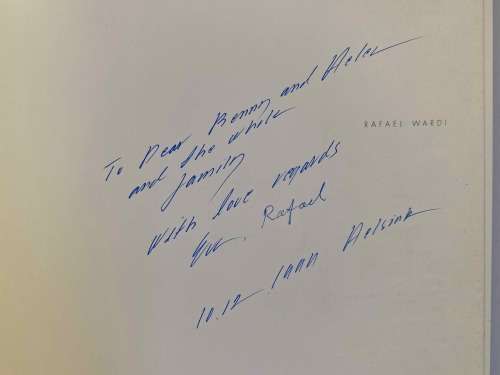 To Dear Benny and Helen
and the whole
family
RAFAEL WARDI
with love regards
Rafael
10.12.1990 Helsinki